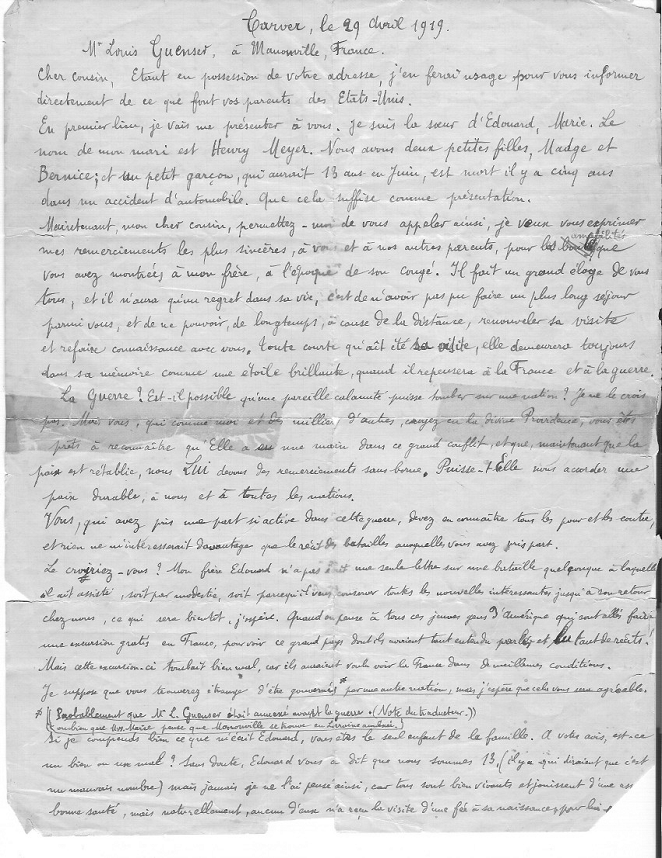 Carver, le 29 Avril 1919.
Mr Louis Guenser, à Manonville, France.
Cher cousin, Etant en possession de votre adresse, j'en ferai usage pour vous informer
directement de ce que font vos parents des Etats-Unis.
En premier lieu, je vais me présenter à vous. Je suis la sœur d'Edouard, Marie. Le
nom de mon mari est Henry Meyer. Nous avons deux petites filles, Madge et
Bernice; et un petit garçon, qui aurait 13 ans en Juin, est mort il y a cinq ans
dans un accident d'automobile. Que cela suffise comme présentation.
Maintenant, mon cher cousin, permettez-moi de vous appeler ainsi, je veux vous exprimer
mes remerciements les plus sincères, à vous et à nos autres parents, pour les amabilités que
vous avez montrées à mon frère, à l'époque de son congé. Il fait un grand éloge de vous
tous, et il n'aura qu'un regret dans sa vie, c'est de n'avoir pas pu faire un plus long séjour
parmi vous, et de ne pouvoir, de longtemps, à cause de la distance, renouveler sa visite
et refaire connaissance avec vous. Toute courte qu'ait été sa visite, elle demeurera toujours
dans sa mémoire comme une étoile brillante, quand il repensera à la France et à la guerre.
La Guerre? Est-il possible qu'une pareille calamité puisse tomber sur une nation? Je ne le crois
pas. Mais vous, qui comme moi et des milliers d'autres, croyez en la divine Providence, vous êtes
prêts à reconnaître qu'Elle a eu une main dans ce grand conflit, et que, maintenant que la
paix est rétablie, nous LUI devons des remerciements sans borne. Puisse-t-Elle nous accorder une
paix durable, à nous et à toutes les nations.
Vous, qui avez pris une part si active dans cette guerre, devez en connaître tous les pour et les contre,
et rien ne m'intéresserait davantage que le récit des batailles auxquelles vous avez pris part.
Le croiriez-vous? Mon frère Edouard n'a pas écrit une seule lettre sur une bataille quelconque à laquelle
il ait assisté, soit par modestie, soit parcequ'il veut conserver toutes les nouvelles intéressantes jusqu'à son retour
chez-nous, ce qui sera bientôt, j'espère. Quand on pense à tous ces jeunes gens d'Amérique qui sont allés faire
une excursion gratis en France, pour voir ce grand pays dont ils avaient tant entendu parler et lu tant de récits!
Mais cette excursion-ci tombait bien mal, car ils auraient voulu voir la France dans de meilleures conditions.
Je suppose que vous trouverez étrange d'être gouvernés * par une autre nation, mais j'espère que cela vous sera agréable.
* ((Probablement que Mr L. Guenser était annexé avant la guerre. (Note du traducteur.))
(ou bien que Mme Marie pense que Manonville se trouve en Lorraine annexée.)
Si je comprends bien ce que m'écrit Edouard, vous êtes le seul enfant de la famille. A votre avis, est-ce
un bien ou un mal? Sans doute, Edouard vous a dit que nous sommes 13, (il y a qui diraient que c'est
un mauvais nombre) mais jamais je ne l'ai pensé ainsi, car tous sont bien vivants et jouissent d'une
bonne santé, mais naturellement, aucun d'eux n'a reçu la visite d'une fée à sa naissance, pour lui